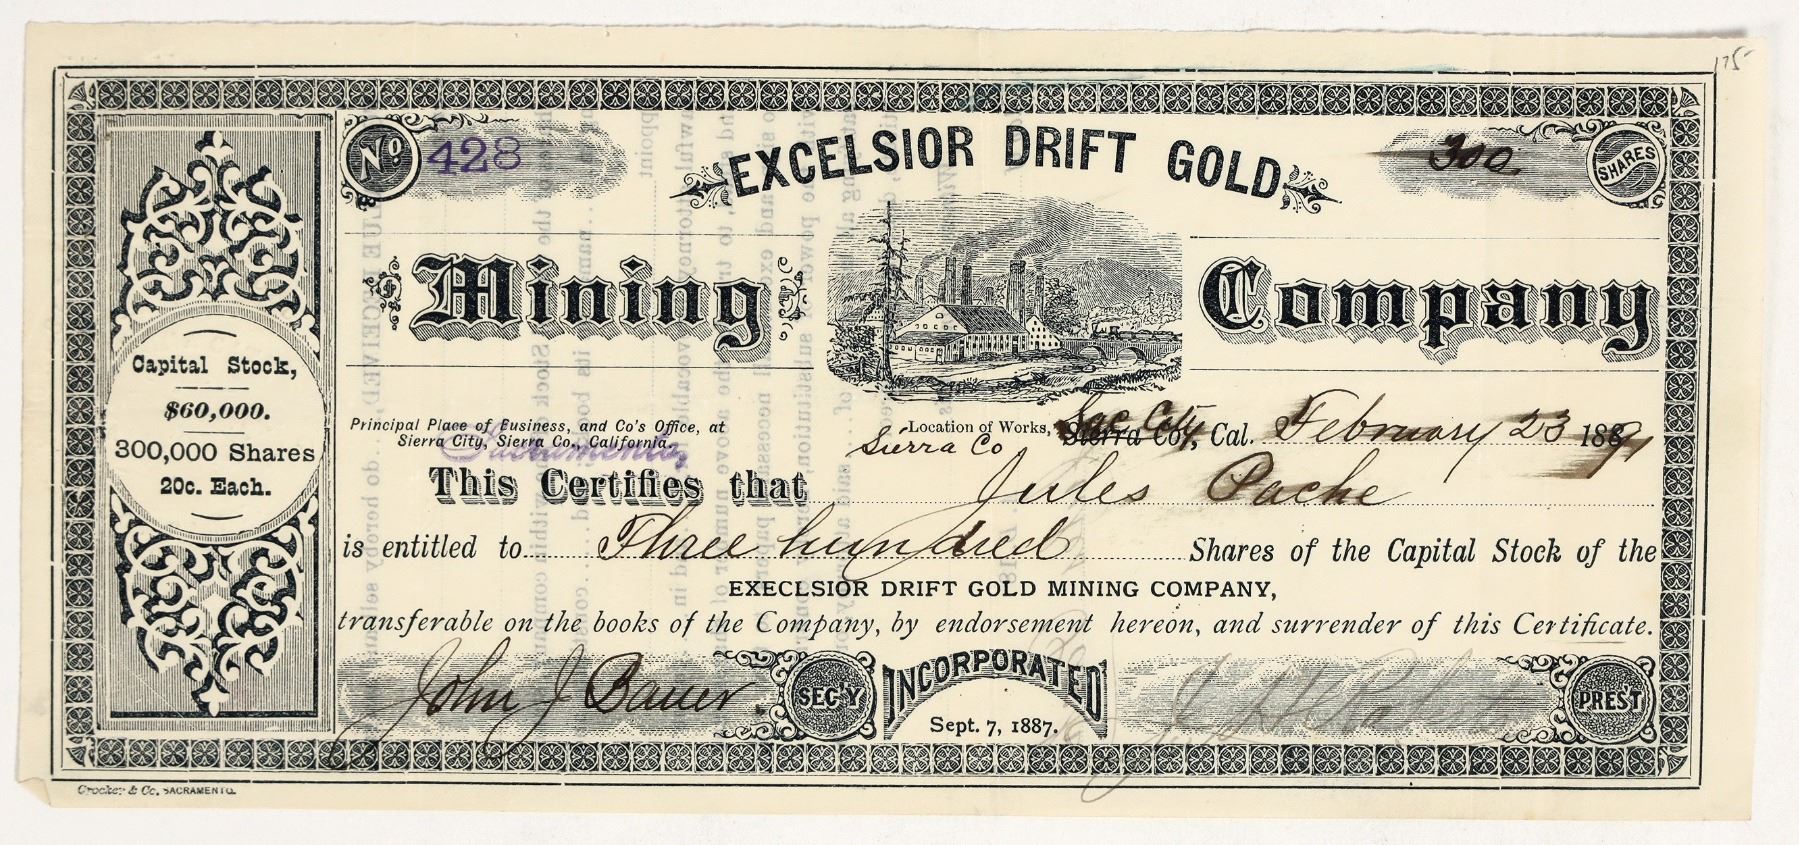 175
No. 428
EXCELSIOR DRIFT GOLD
300 SHARES
Mining Company
Capital Stock,
$60,000.
300,000 Shares
20c. Each.
Principal Place of Business, and Co's Office, at
Sierra City, Sierra Co., California.
Sacramento,
Location of Works, Sierra Co., Cal. February 23 188
Sac City
Sierra Co
This Certifies that Jules Pache
is entitled to Three hundred Shares of the Capital Stock of the
EXECLSIOR DRIFT GOLD MINING COMPANY,
transferable on the books of the Company, by endorsement hereon, and surrender of this Certificate.
John J Bauer SEC'Y
INCORPORATED
Sept. 7, 1887.
PREST
Crocker & Co. SACRAMENTO.